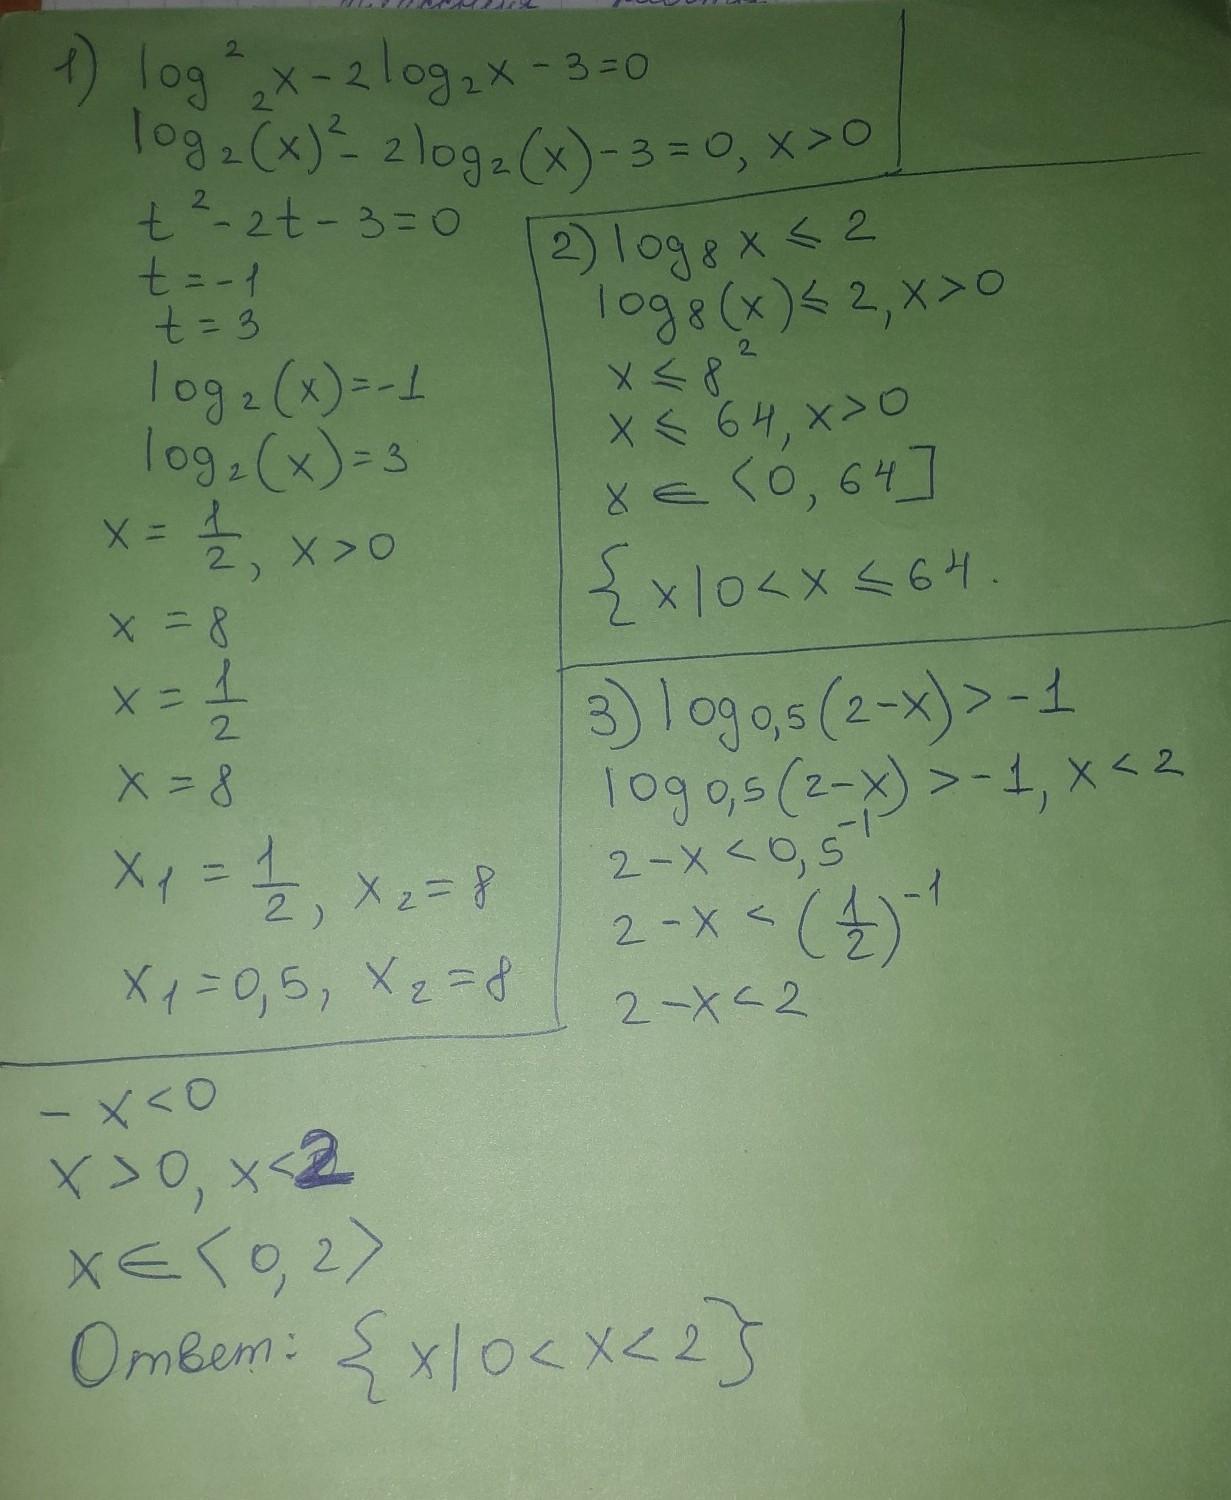 1) log²₂x-2log₂x-3=0
log₂(x)²-2log₂(x)-3=0, x>0
t²-2t-3=0
t=-1
t=3
log₂(x)=-1
log₂(x)=3
x=1/2, x>0
x=8
x=1/2
x=8
x₁=1/2, x₂=8
x₁=0,5, x₂=8
2) log₈x⩽2
log₈(x)⩽2, x>0
x⩽8²
x⩽64, x>0
x∈⟨0, 64]
{x|0<x⩽64.
3) log0,5(2-x)>-1
log0,5(2-x)>-1, x<2
2-x<0,5⁻¹
2-x<(1/2)⁻¹
2-x<2
-x<0
x>0, x<2
x∈⟨0,2⟩
Ответ: {x|0<x<2}